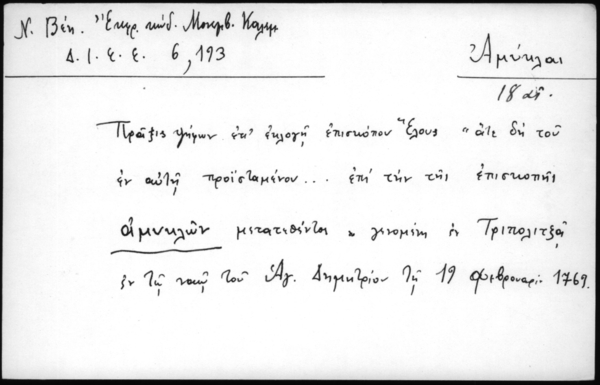 Ν. Βέη. Ἔκφρ. κώδ. Μονεμβ. Καλαμ
Δ. Ι. Ε. Ε. 6, 193
Ἀμύκλαι
18 αἰ.
Πρᾶξις ψήφων ἐπ' ἐκλογῇ ἐπισκόπου Ἕλους "ἅτε δὴ τοῦ
ἐν αὐτῇ προϊσταμένου... ἐπί τήν τῆς ἐπισκοπῆς
ἀμυκλῶν μετατεθέντος " γενομένη ἐν Τριπολιτζᾷ
ἐν τῷ ναῷ τοῦ Ἁγ. Δημητρίου τῇ 19 φεβρουαρί. 1769.